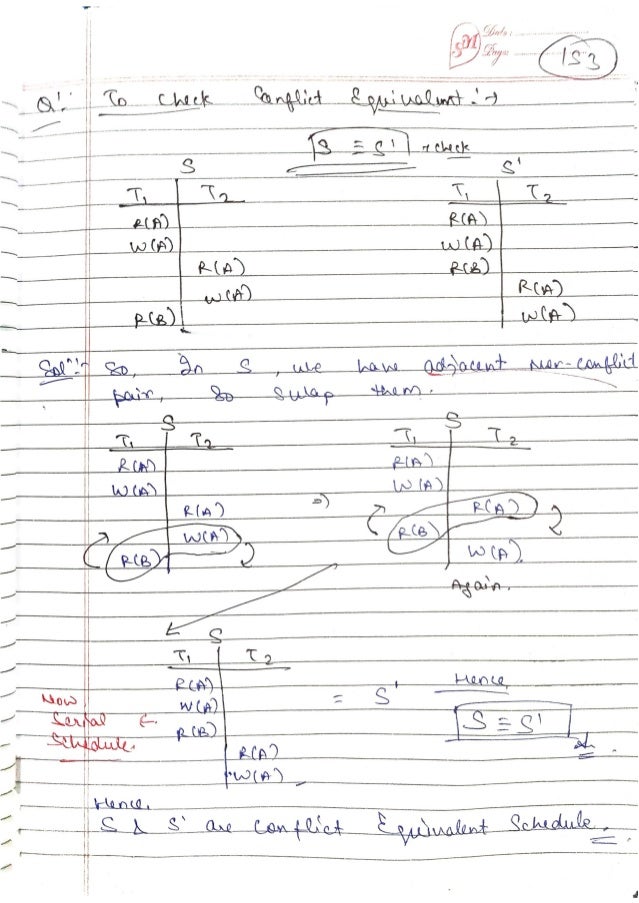 SM Date:
Page: 153
Q!:- To check Conflict Equivalent :→
S ≡ S' → check
S S'
T1 T2 T1 T2
R(A) R(A)
W(A) W(A)
R(A) R(B)
W(A) R(A)
R(B) W(A)
Solⁿ:- So, In S, we have adjacent non-conflict
pair, So swap them.
S S
T1 T2 ⇒ T1 T2
R(A) R(A)
W(A) W(A)
R(A) R(A)
W(A) R(B)
R(B) W(A)
Again.
S
T1 T2
R(A)
W(A)
R(B)
R(A)
W(A)
Now
Serial ←
Schedule.
= S' Hence,
S ≡ S'
Hence,
S & S' are conflict Equivalent Schedule.